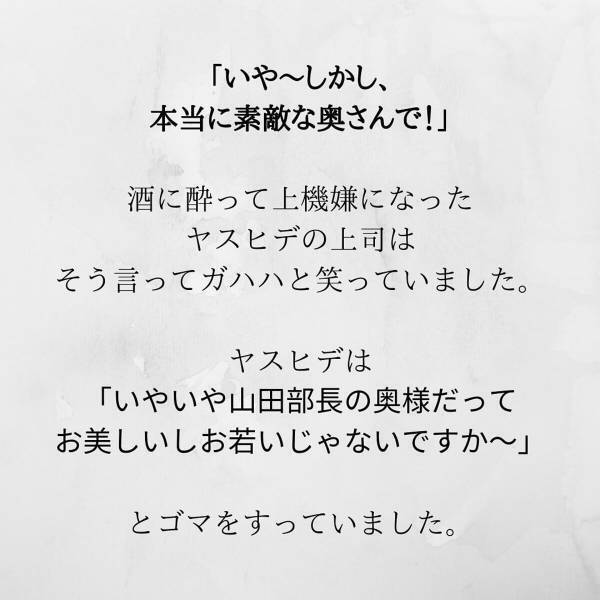 「いや〜しかし、
本当に素敵な奥さんで！」
酒に酔って上機嫌になった
ヤスヒデの上司は
そう言ってガハハと笑っていました。
ヤスヒデは
「いやいや山田部長の奥様だって
お美しいしお若いじゃないですか〜」
とゴマをすっていました。